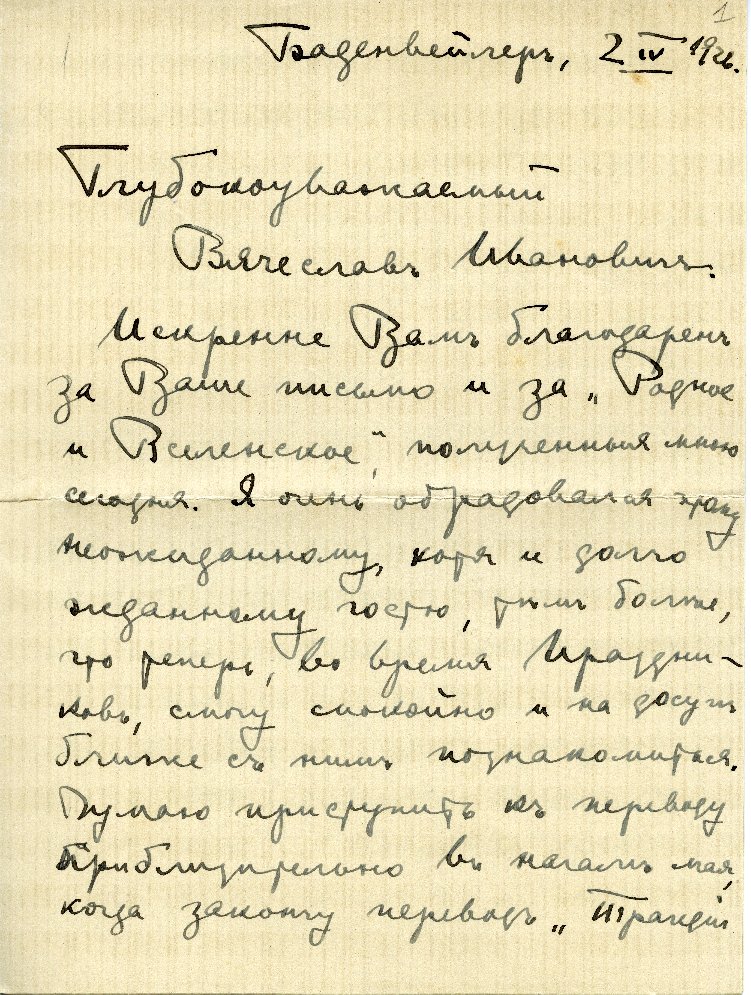 1
Баденвейлеръ, 2 IV 1926.
Глубокоуважаемый
Вячеславъ Ивановичъ.
Искренне Вамъ благодаренъ
за Ваше письмо и за „Родное
и Вселенское“, полученныя мною
сегодня. Я очень обрадовался этому
неожиданному, хотя и долго
жданному гостю, тѣмъ более,
что теперь, во время Праздни-
ковъ, смогу спокойно и на досугѣ
ближе съ нимъ познакомиться.
Думаю приступить къ переводу
приблизительно въ началѣ мая,
когда закончу переводъ „Трагедiи